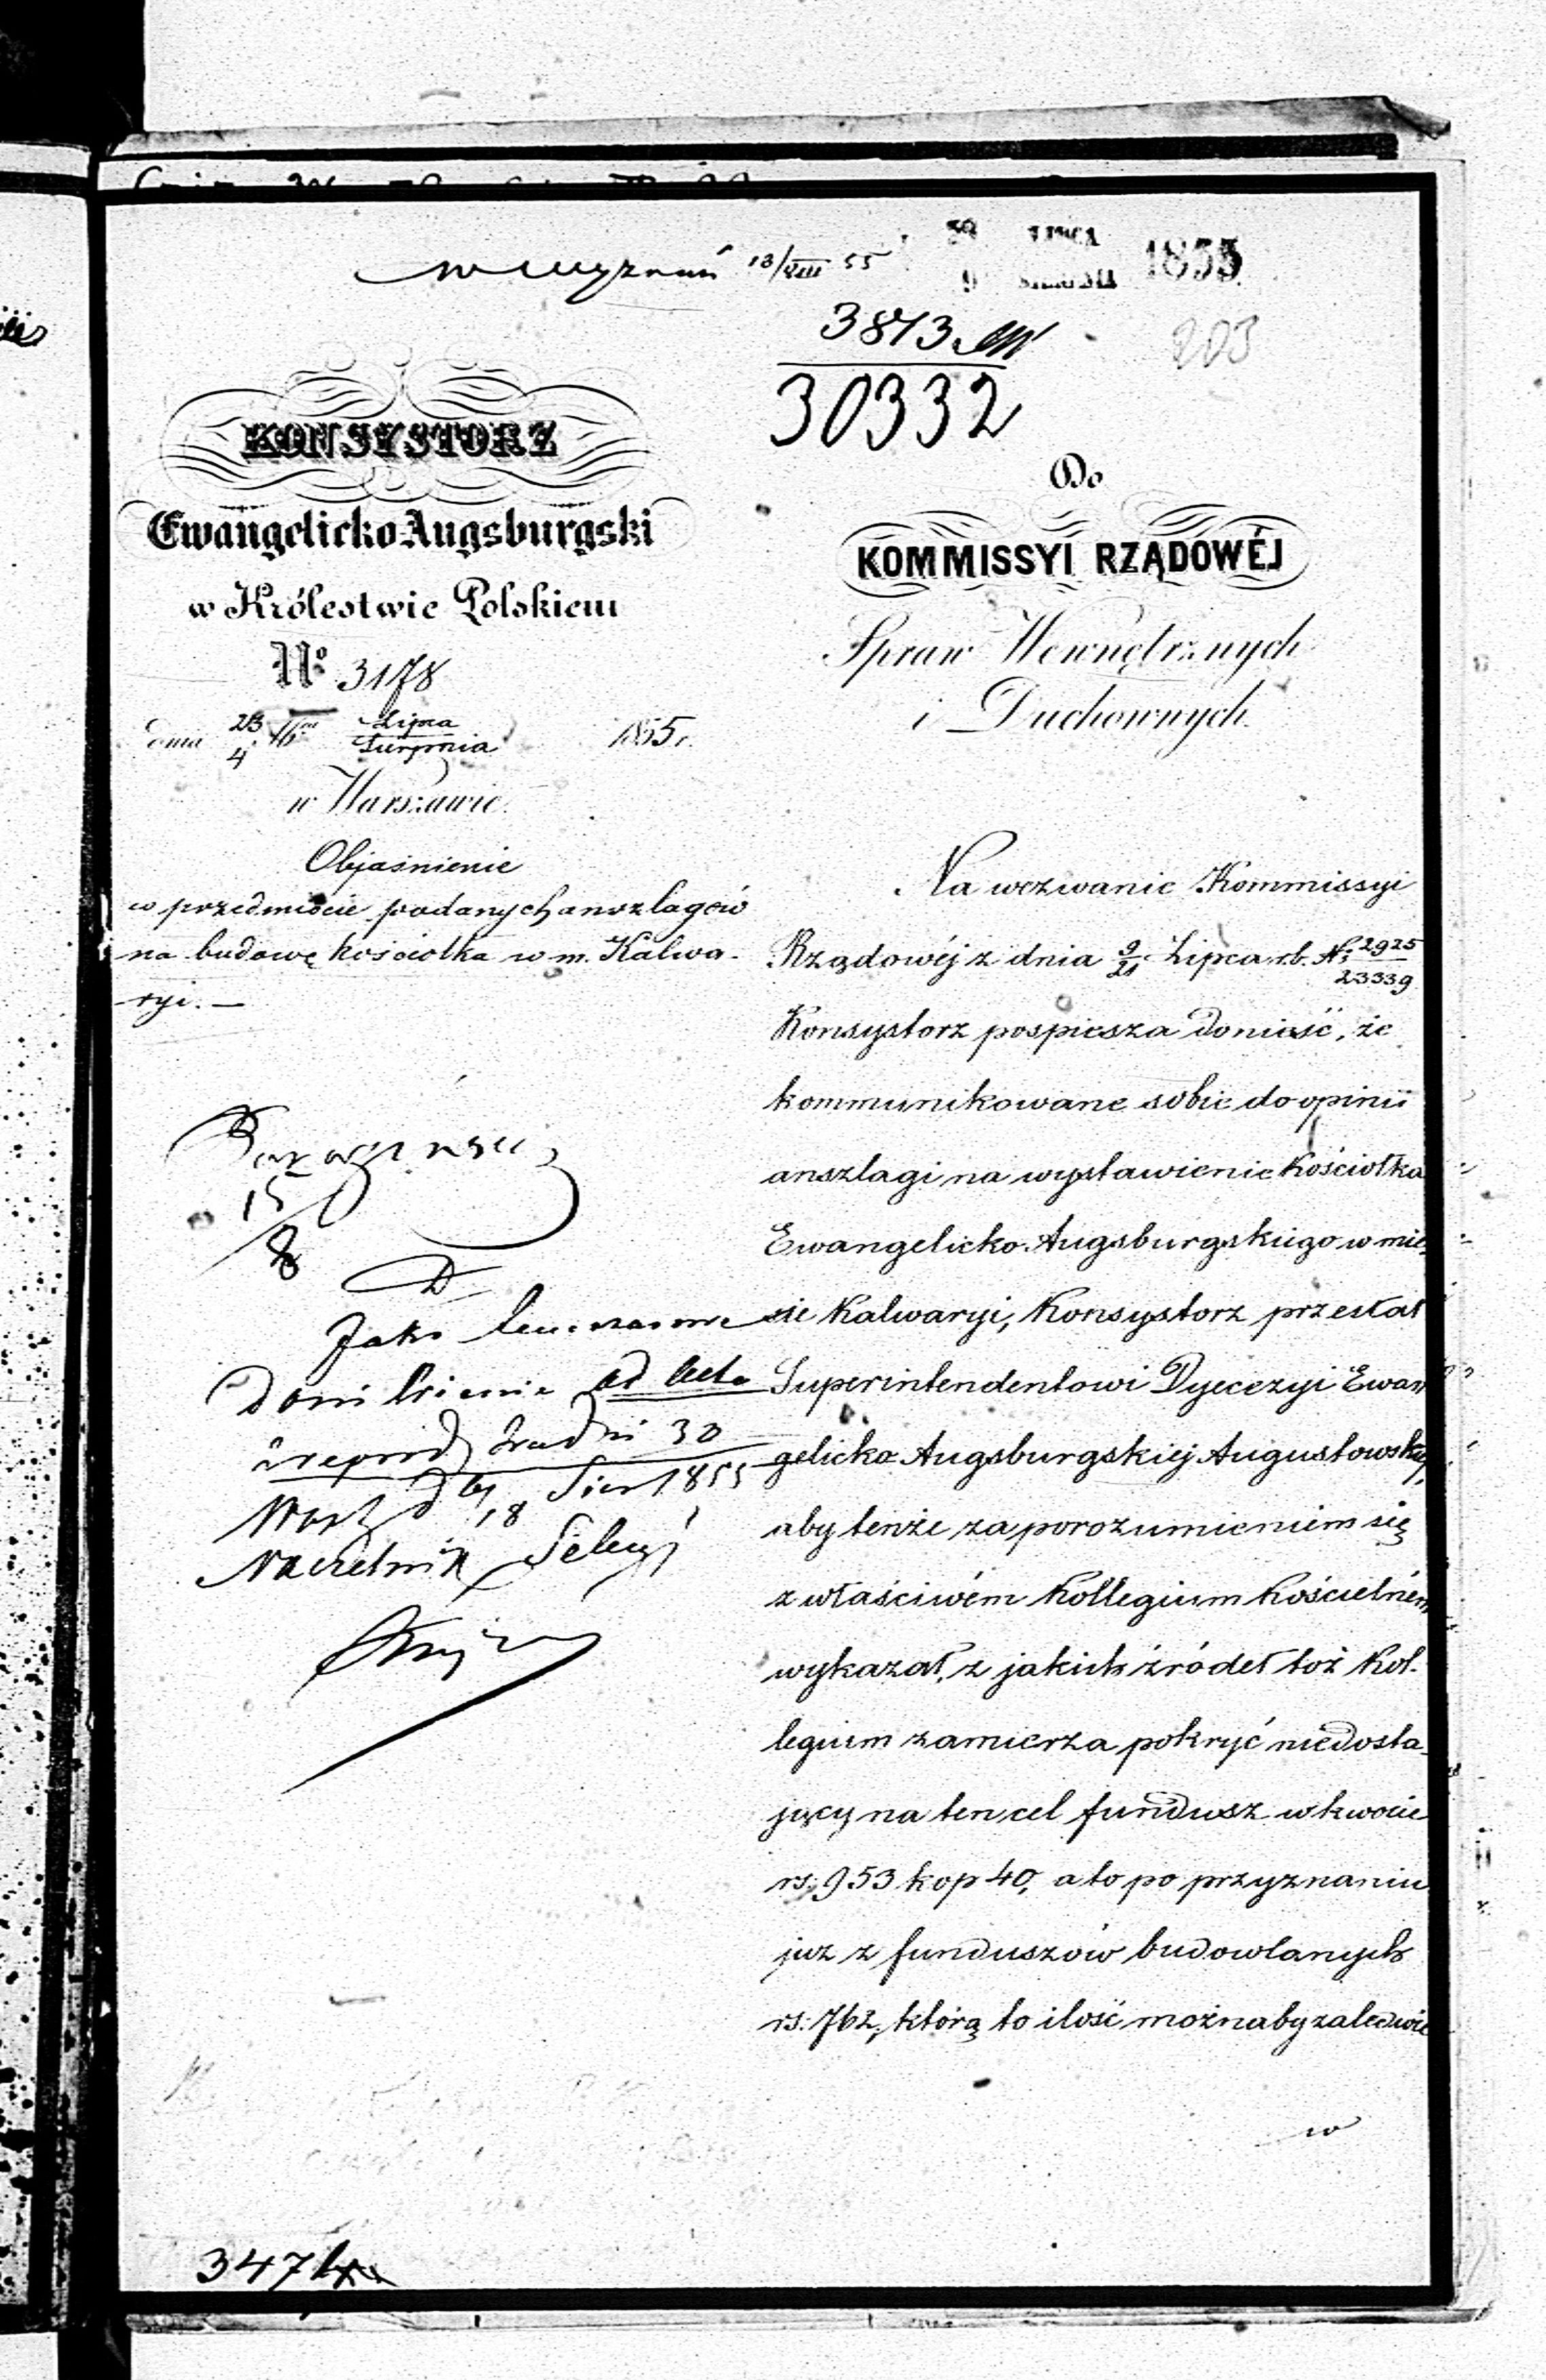 w Wyznań 13/VIII 55
28 LIPCA
9 SIERPNIA 1855
3873
30332
203
KONSYSTORZ
Ewangelicko Augsburgski
w Królestwie Polskiem
No 3178
dnia 23/4 Lipca/Sierpnia 1855 r.
w Warszawie.
Objaśnienie
w przedmiocie podanych anszlagów
na budowę kościołka w m. Kalwa-
ryi. —
15/8
Jako tymczasowe
doniesienie ad acta
30
Warsz d 6/18 Sier 1855
Naczelnik Sekcyi
347
Do
KOMMISSYI RZĄDOWÉJ
Spraw Wewnętrznych
i Duchownych.
Na wezwanie Kommissyi
Rządowéj z dnia 9/21 Lipca r.b. No 2925/23339
Konsystorz pospiesza donieść, że
kommunikowane sobie do opinii
anszlagi na wystawienie kościołka
Ewangelicko-Augsburgskiego w mie-
ście Kalwaryi, Konsystorz przesłał
Superintendentowi Dyecezyi Ewan
gelicko Augsburgskiej Augustowskiej,
aby tenże za porozumieniem się
z właściwém Kollegium Kościelném
wykazał, z jakich źródeł toż Kol-
legium zamierza pokryć niedosta-
jący na ten cel fundusz w kwocie
rs. 953 kop 40, a to po przyznaniu
już z funduszów budowlanych
rs: 762, którą to ilość możnaby zaledwie
w